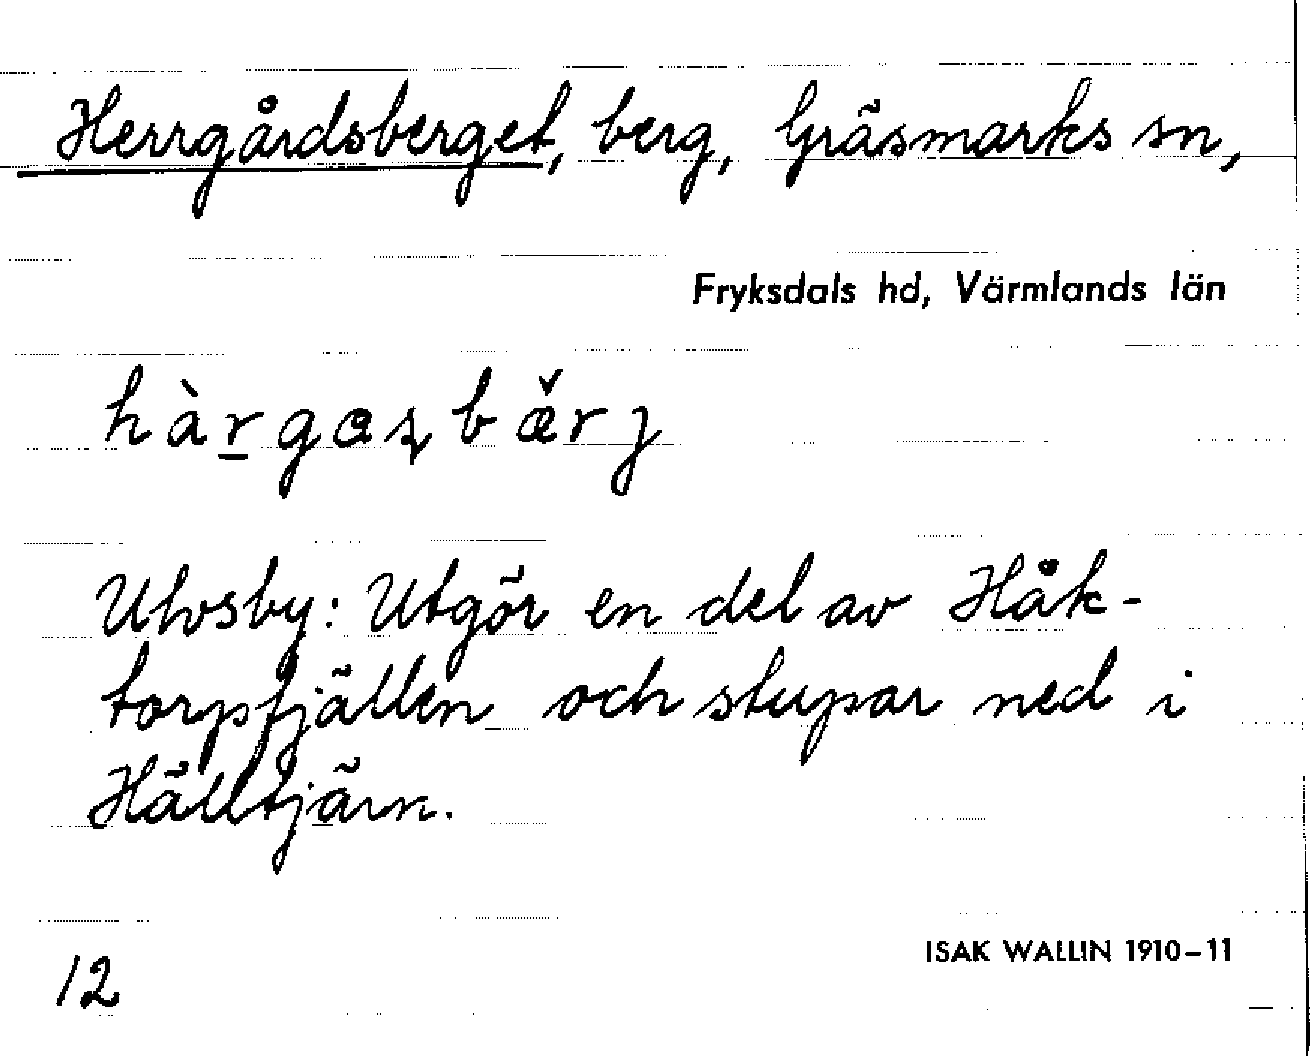 Herrgårdsberget, berg, Gräsmarks sn,
Fryksdals hd, Värmlands län
hàr̲gasbæ̌rj
Ulvsby: Utgör en del av Håk-
torpfjällen och stupar ned i
Hälltjärn.
12
ISAK WALLIN 1910–11